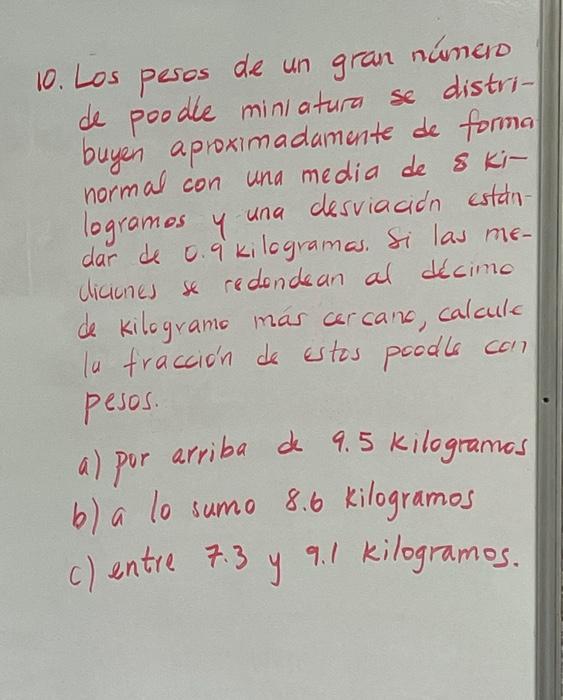 10. Los pesos de un gran número
de poodle miniatura se distri-
buyen aproximadamente de forma
normal con una media de 8 ki-
logramos y una desviación están-
dar de 0.9 kilogramos. Si las me-
diciones se redondean al décimo
de kilogramo más cercano, calcule
la fracción de estos poodle con
pesos.
a) por arriba de 9.5 kilogramos
b) a lo sumo 8.6 kilogramos
c) entre 7.3 y 9.1 kilogramos.